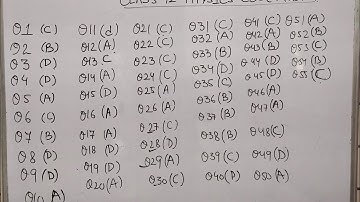 CLASS 12 PHYSICS
Q1 (C)
Q2 (B)
Q3 (D)
Q4 (D)
Q5 (A)
Q6 (C)
Q7 (B)
Q8 (D)
Q9 (D)
Q10 (A)
Q11 (d)
Q12 (A)
Q13 C
Q14 (A)
Q15 (D)
Q16 (A)
Q17 (A)
Q18 (D)
Q19 (D)
Q20 (A)
Q21 (C)
Q22 (C)
Q23 (C)
Q24 (C)
Q25 (A)
Q26 (A)
Q27 (C)
Q28 (D)
Q29 (A)
Q30 (C)
Q31 (C)
Q32 (A)
Q33 (B)
Q34 (D)
Q35 (C)
Q36 (B)
Q37 (B)
Q38 (B)
Q39 (C)
Q40 (D)
Q41 (C)
Q42 (A)
Q43 (B)
Q44 (D)
Q45 (D)
Q46 (A)
Q47 (A)
Q48 (C)
Q49 (D)
Q50 (A)
Q51 (A)
Q52 (B)
Q53 (C)
Q54 (B)
Q55 (C)